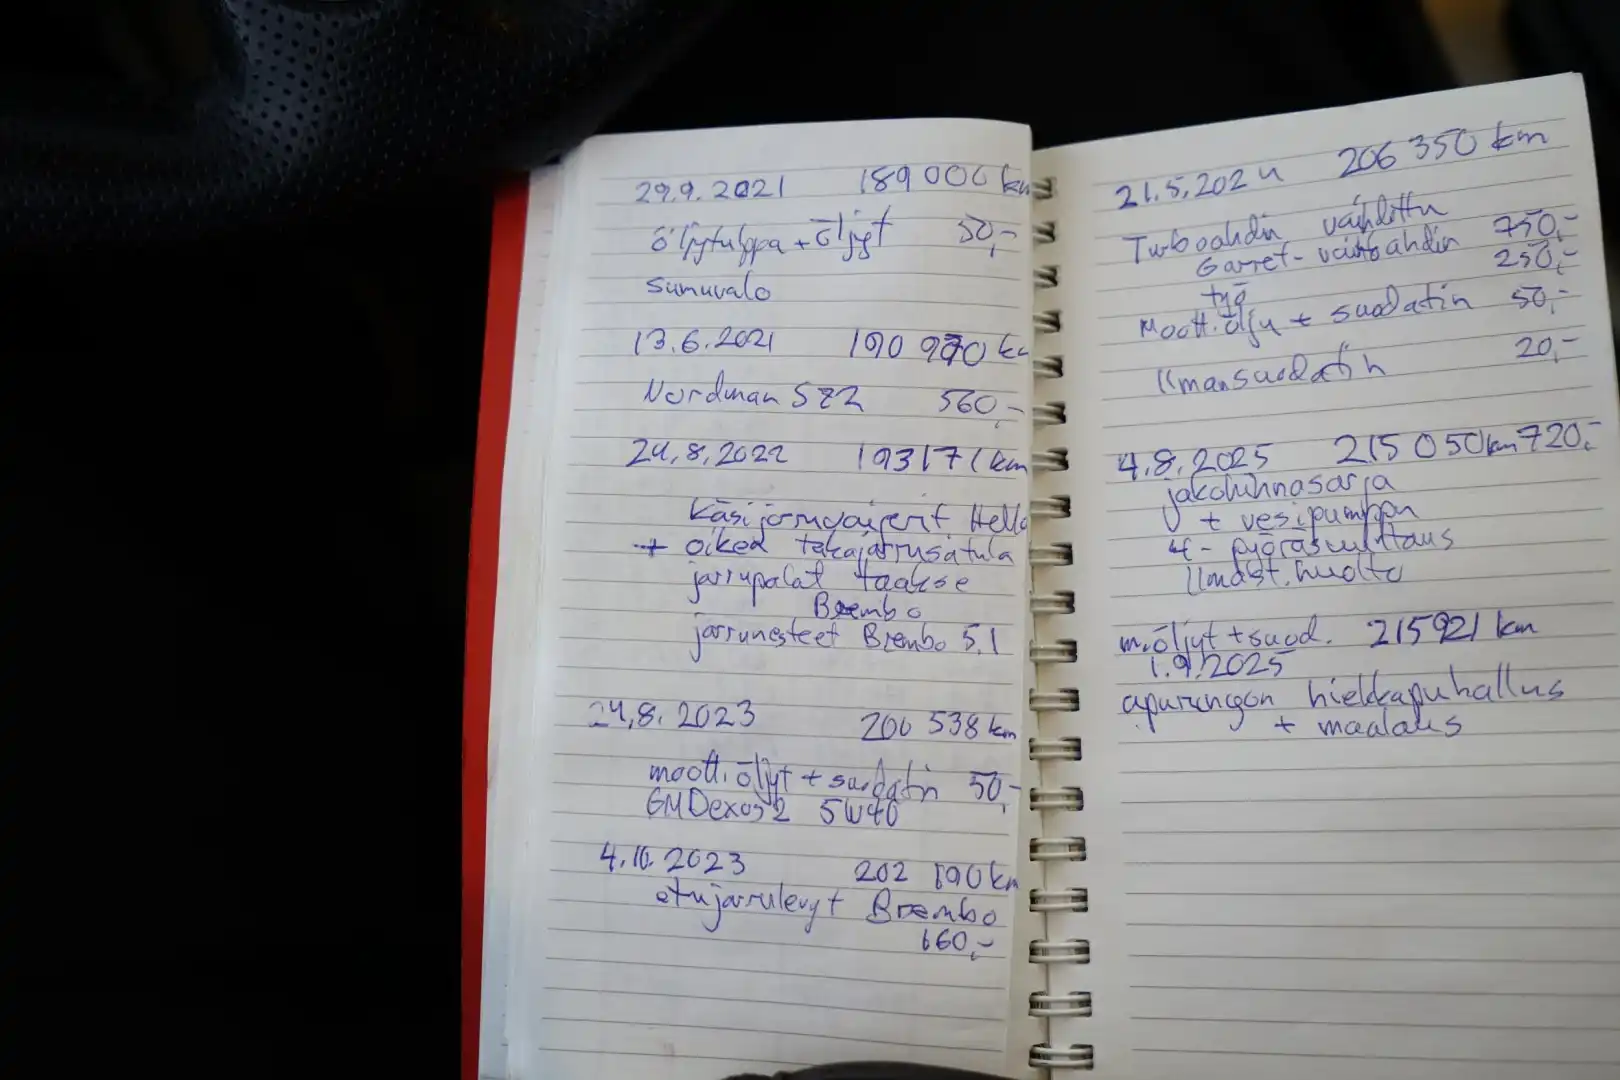 29.9.2021 189 000 km
öljytulppa + öljyt 50,-
sumuvalo
13.6.2021 190 970 km
Nordman SZ2 560,-
24.8.2022 193171 km
Käsijarruvaijerit Hella
+ oikea takajarrusatula
jarrupalat taakse
Brembo
jarrunesteet Brembo 5.1
24.8. 2023 200 538 km
moott. öljyt + suodatin 50,-
GMDexos2 5W40
4.10. 2023 202 190 km
etujarrulevyt Brembo
160,-
21.5.2024 206 350 km
Turboahdin vaihdettu
Garret- vaihtoahdin 750,-
työ 250,-
Moott. öljy + suodatin 50,-
Ilmansuodatin 20,-
4.8.2025 215 050 km 720,-
jakohihnasarja
+ vesipumppu
4- pyöräsuuntaus
Ilmast. huolto
m.öljyt + suod. 215921 km
1.9.2025
apurungon hiekkapuhallus
+ maalaus